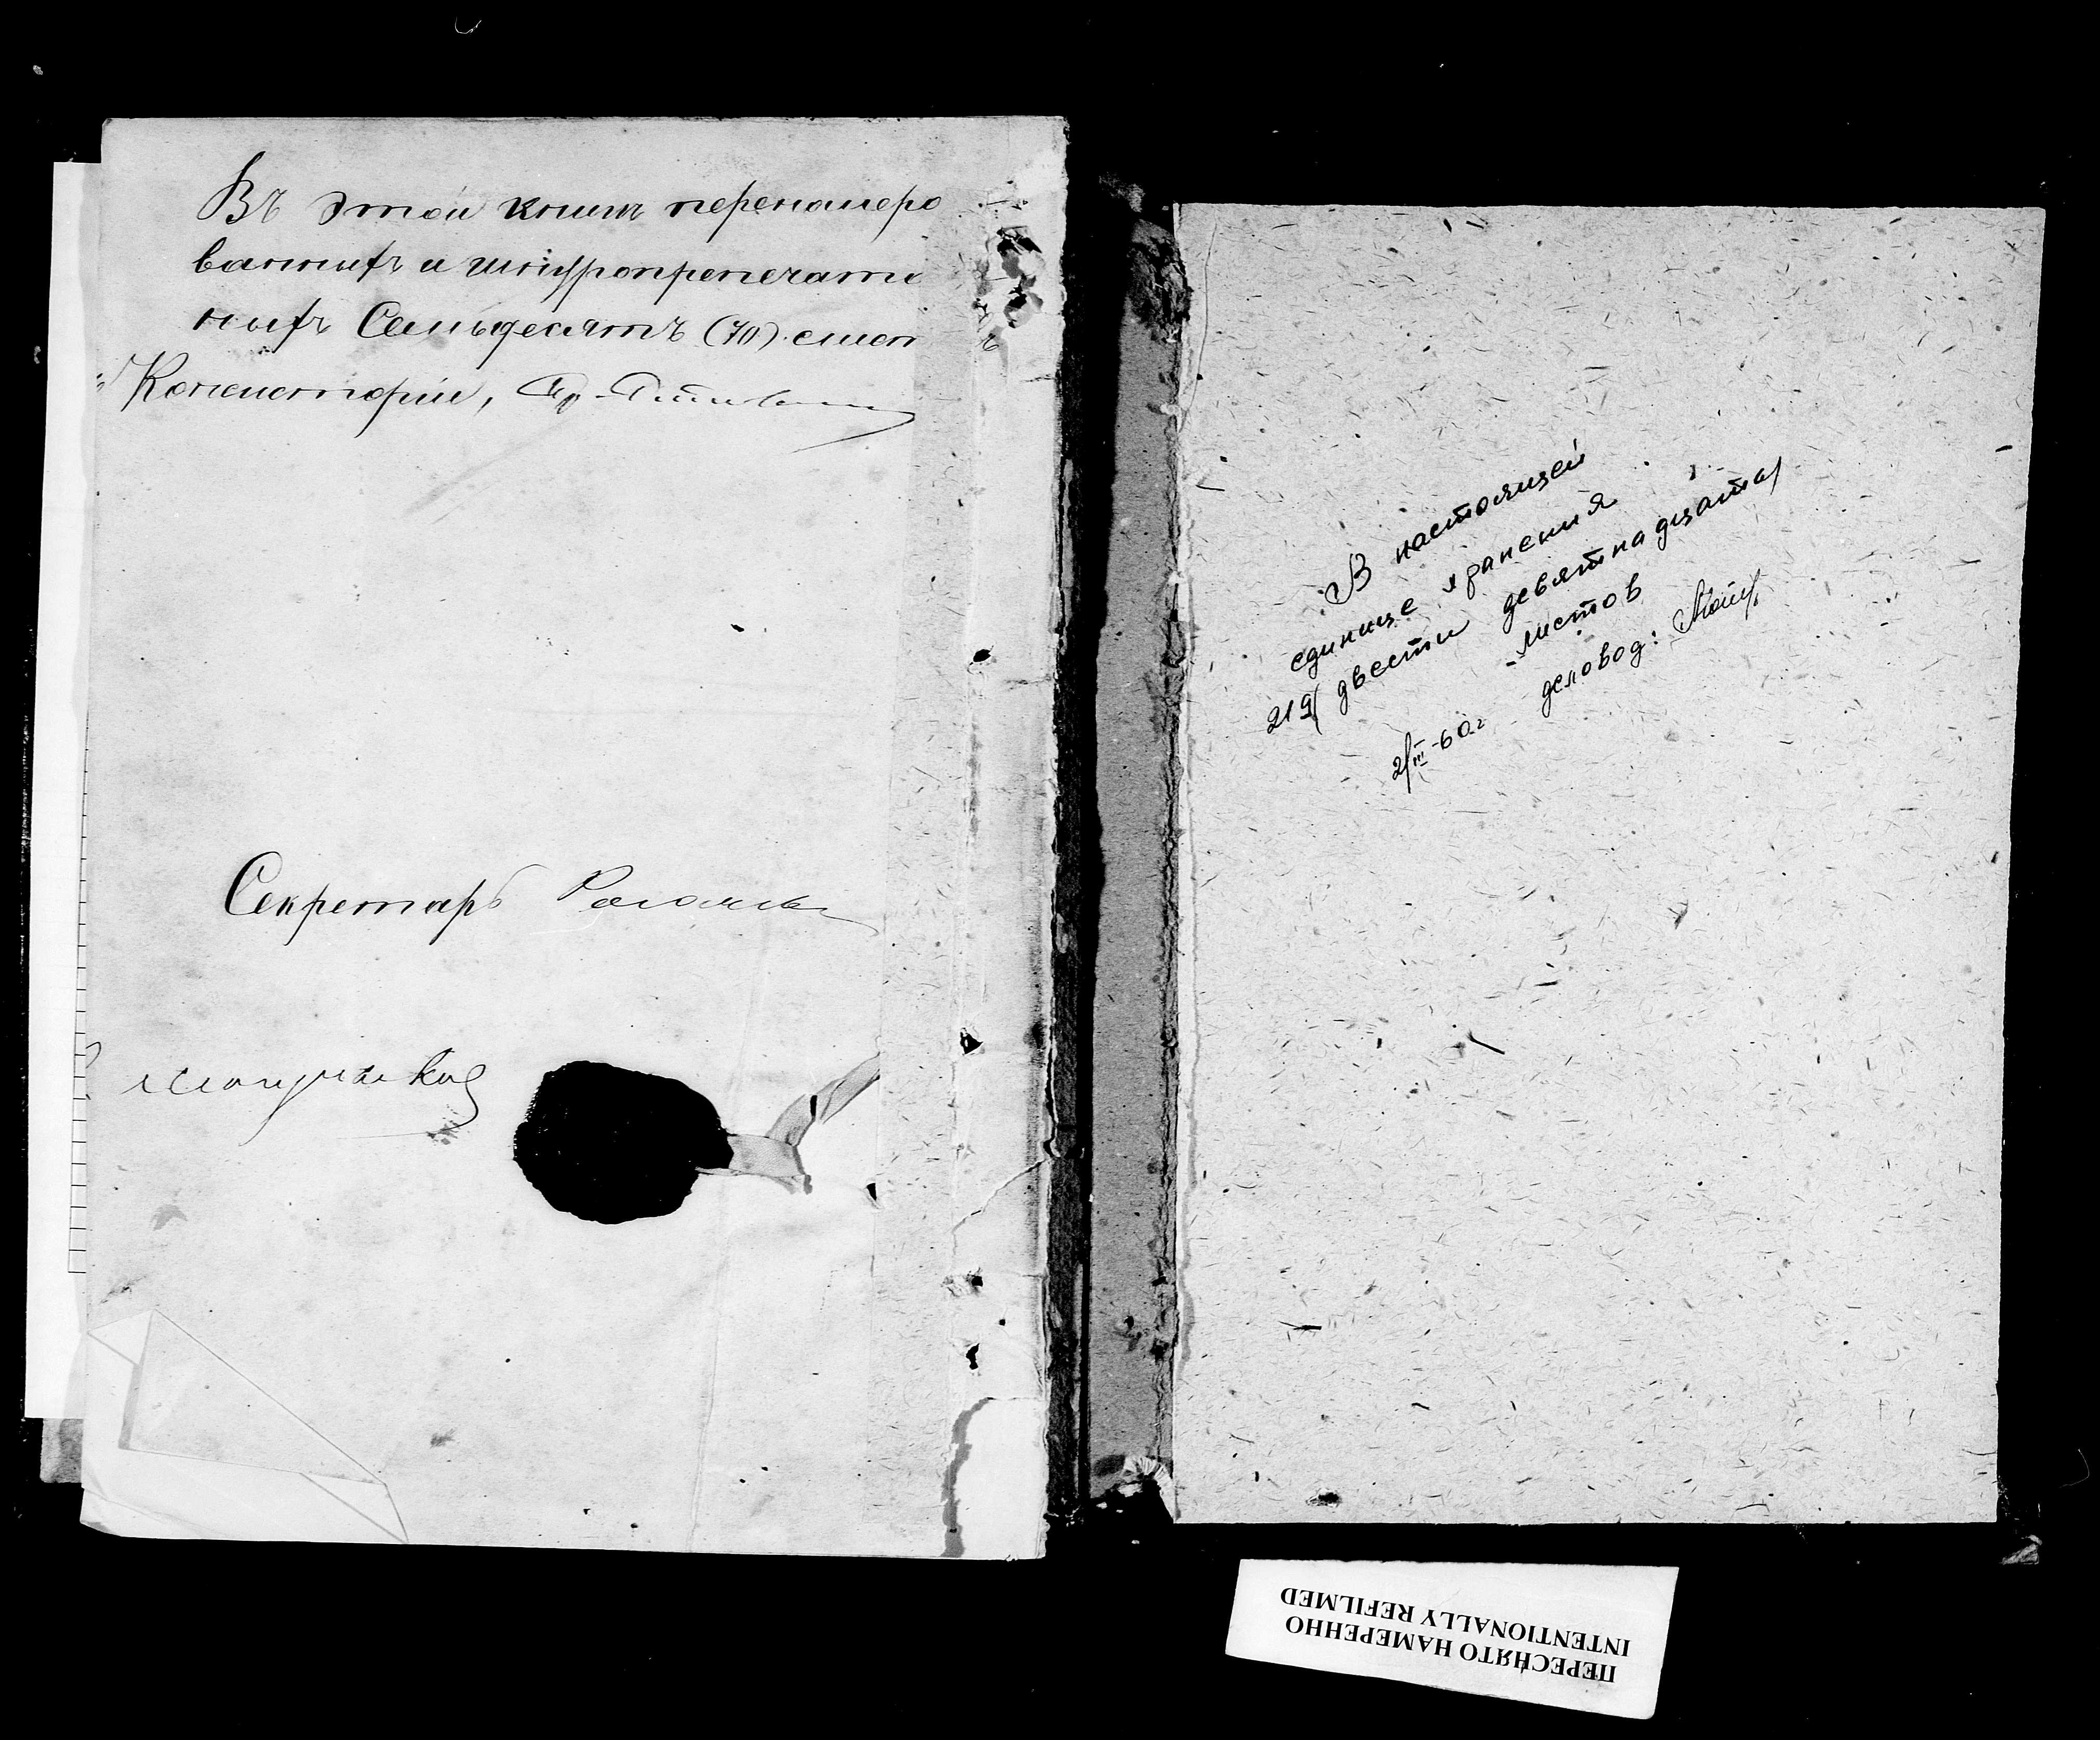 Въ этой книгѣ перенумеро
ванныхъ и шнуропрепечатан
ныхъ Семьдесятъ (70) лист
Консисторіи,
Секретарь
В настоящей
единице хранения
219/ двести девятнадцать/
листов
2/III-60 г деловод:
ПЕРЕСНЯТО НАМЕРЕННО
INTENTIONALLY REFILMED